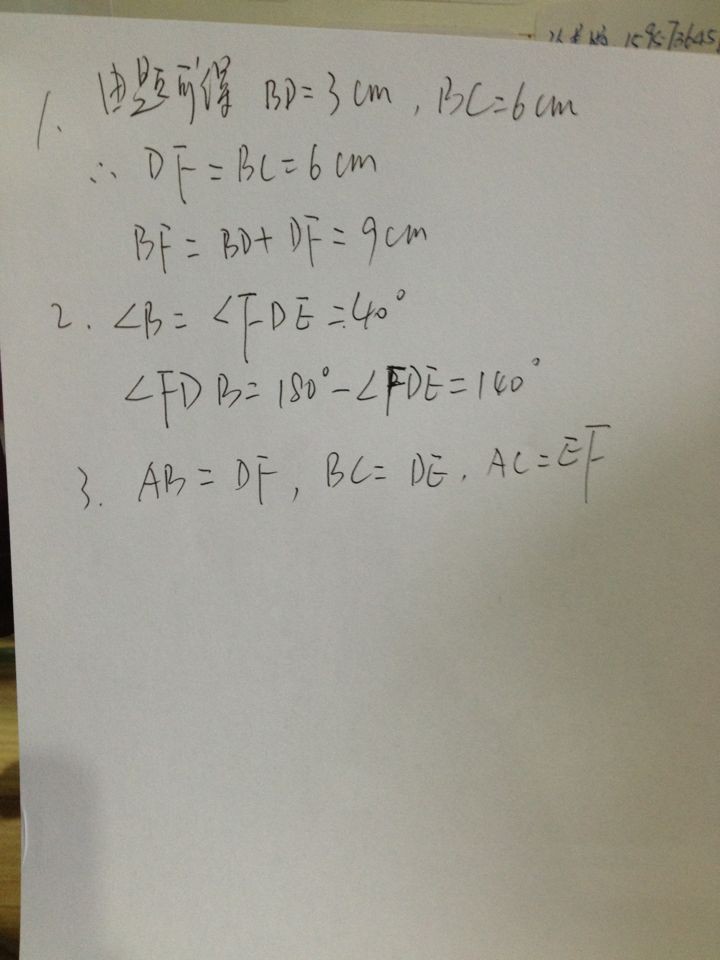 1. 由题可得 BD=3cm, BC=6cm
∴ DF=BC=6cm
BF=BD+DF=9cm
2. ∠B=∠FDE=40°
∠FDB=180°-∠FDE=140°
3. AB=DF, BC=DE. AC=EF